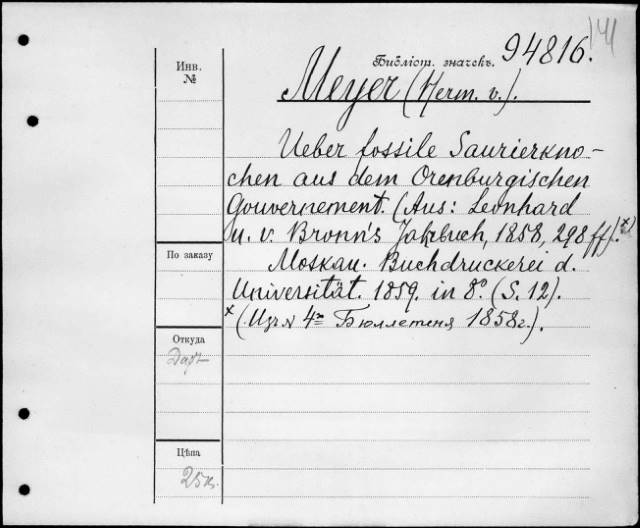 141
Библіот. значекъ. 94816.
Инв.
№
Meyer (Herm. v.).
Ueber fossile Saurierkno-
chen aus dem Orenburgischen
Gouvernement. (Aus: Leonhard
u. v. Bronn's Jahrbuch, 1858, 298 ff).x)
По заказу
Moskau. Buchdruckerei d.
Universität. 1859. in 8º. (S. 12).
x (Изъ № 4го Бюллетеня 1858 г.).
Откуда
Даръ
Цѣна
25к.